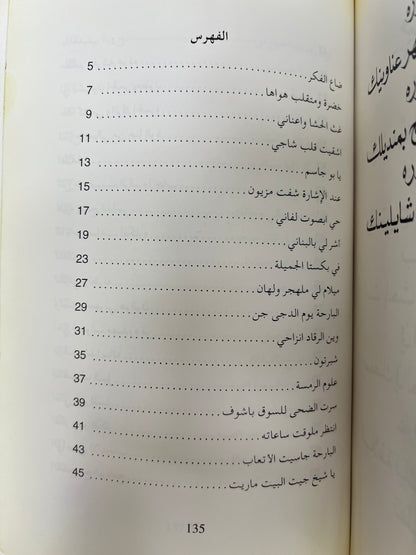 الفهرس
ضاع الفكر ........ 5
خضرة ومتقلب هواها ........ 7
غث الحشا واعناني ........ 9
اشفيت قلب شاجي ........ 11
يا بو جاسم ........ 13
عند الإشارة شفت مزيون ........ 15
حي ابصوت لفاني ........ 17
اشر لي بالبناني ........ 19
في بكستا الجميلة ........ 23
ميلام لي ملهجر ولهان ........ 27
البارحة يوم الدجى جن ........ 29
وين الرقاد انزاحي ........ 31
شبرتون ........ 35
علوم الرمسة ........ 37
سرت الضحى للسوق باشوف ........ 39
انتظر ملوقت ساعاته ........ 41
البارحة جاسيت الأتعاب ........ 43
يا شيخ جيت البيت ماريت ........ 45
135
عناوينك
بمنديلك
شايلينك